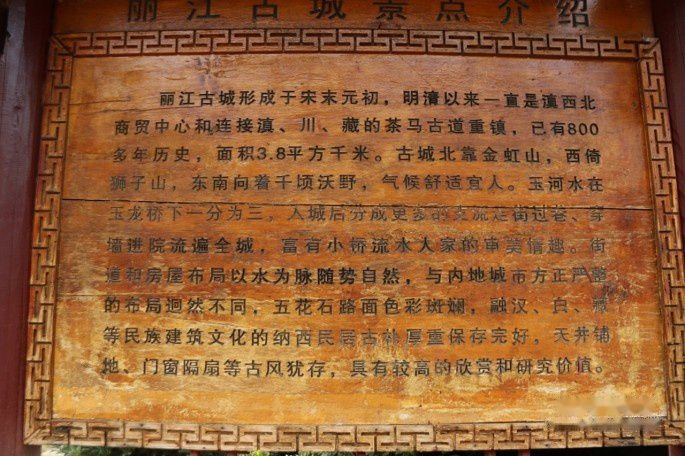 丽江古城景点介绍
丽江古城形成于宋末元初，明清以来一直是滇西北
商贸中心和连接滇、川、藏的茶马古道重镇，已有800
多年历史，面积3.8平方千米。古城北靠金虹山，西倚
狮子山，东南向着千顷沃野，气候舒适宜人。玉河水在
玉龙桥下一分为三，入城后分成更多的支流走街过巷、穿
墙进院流遍全城，富有小桥流水人家的审美情趣。街
道和房屋布局以水为脉随势自然，与内地城市方正严整
的布局迥然不同，五花石路面色彩斑斓，融汉、白、藏
等民族建筑文化的纳西民居古朴厚重保存完好，天井铺
地、门窗隔扇等古风犹存，具有较高的欣赏和研究价值。